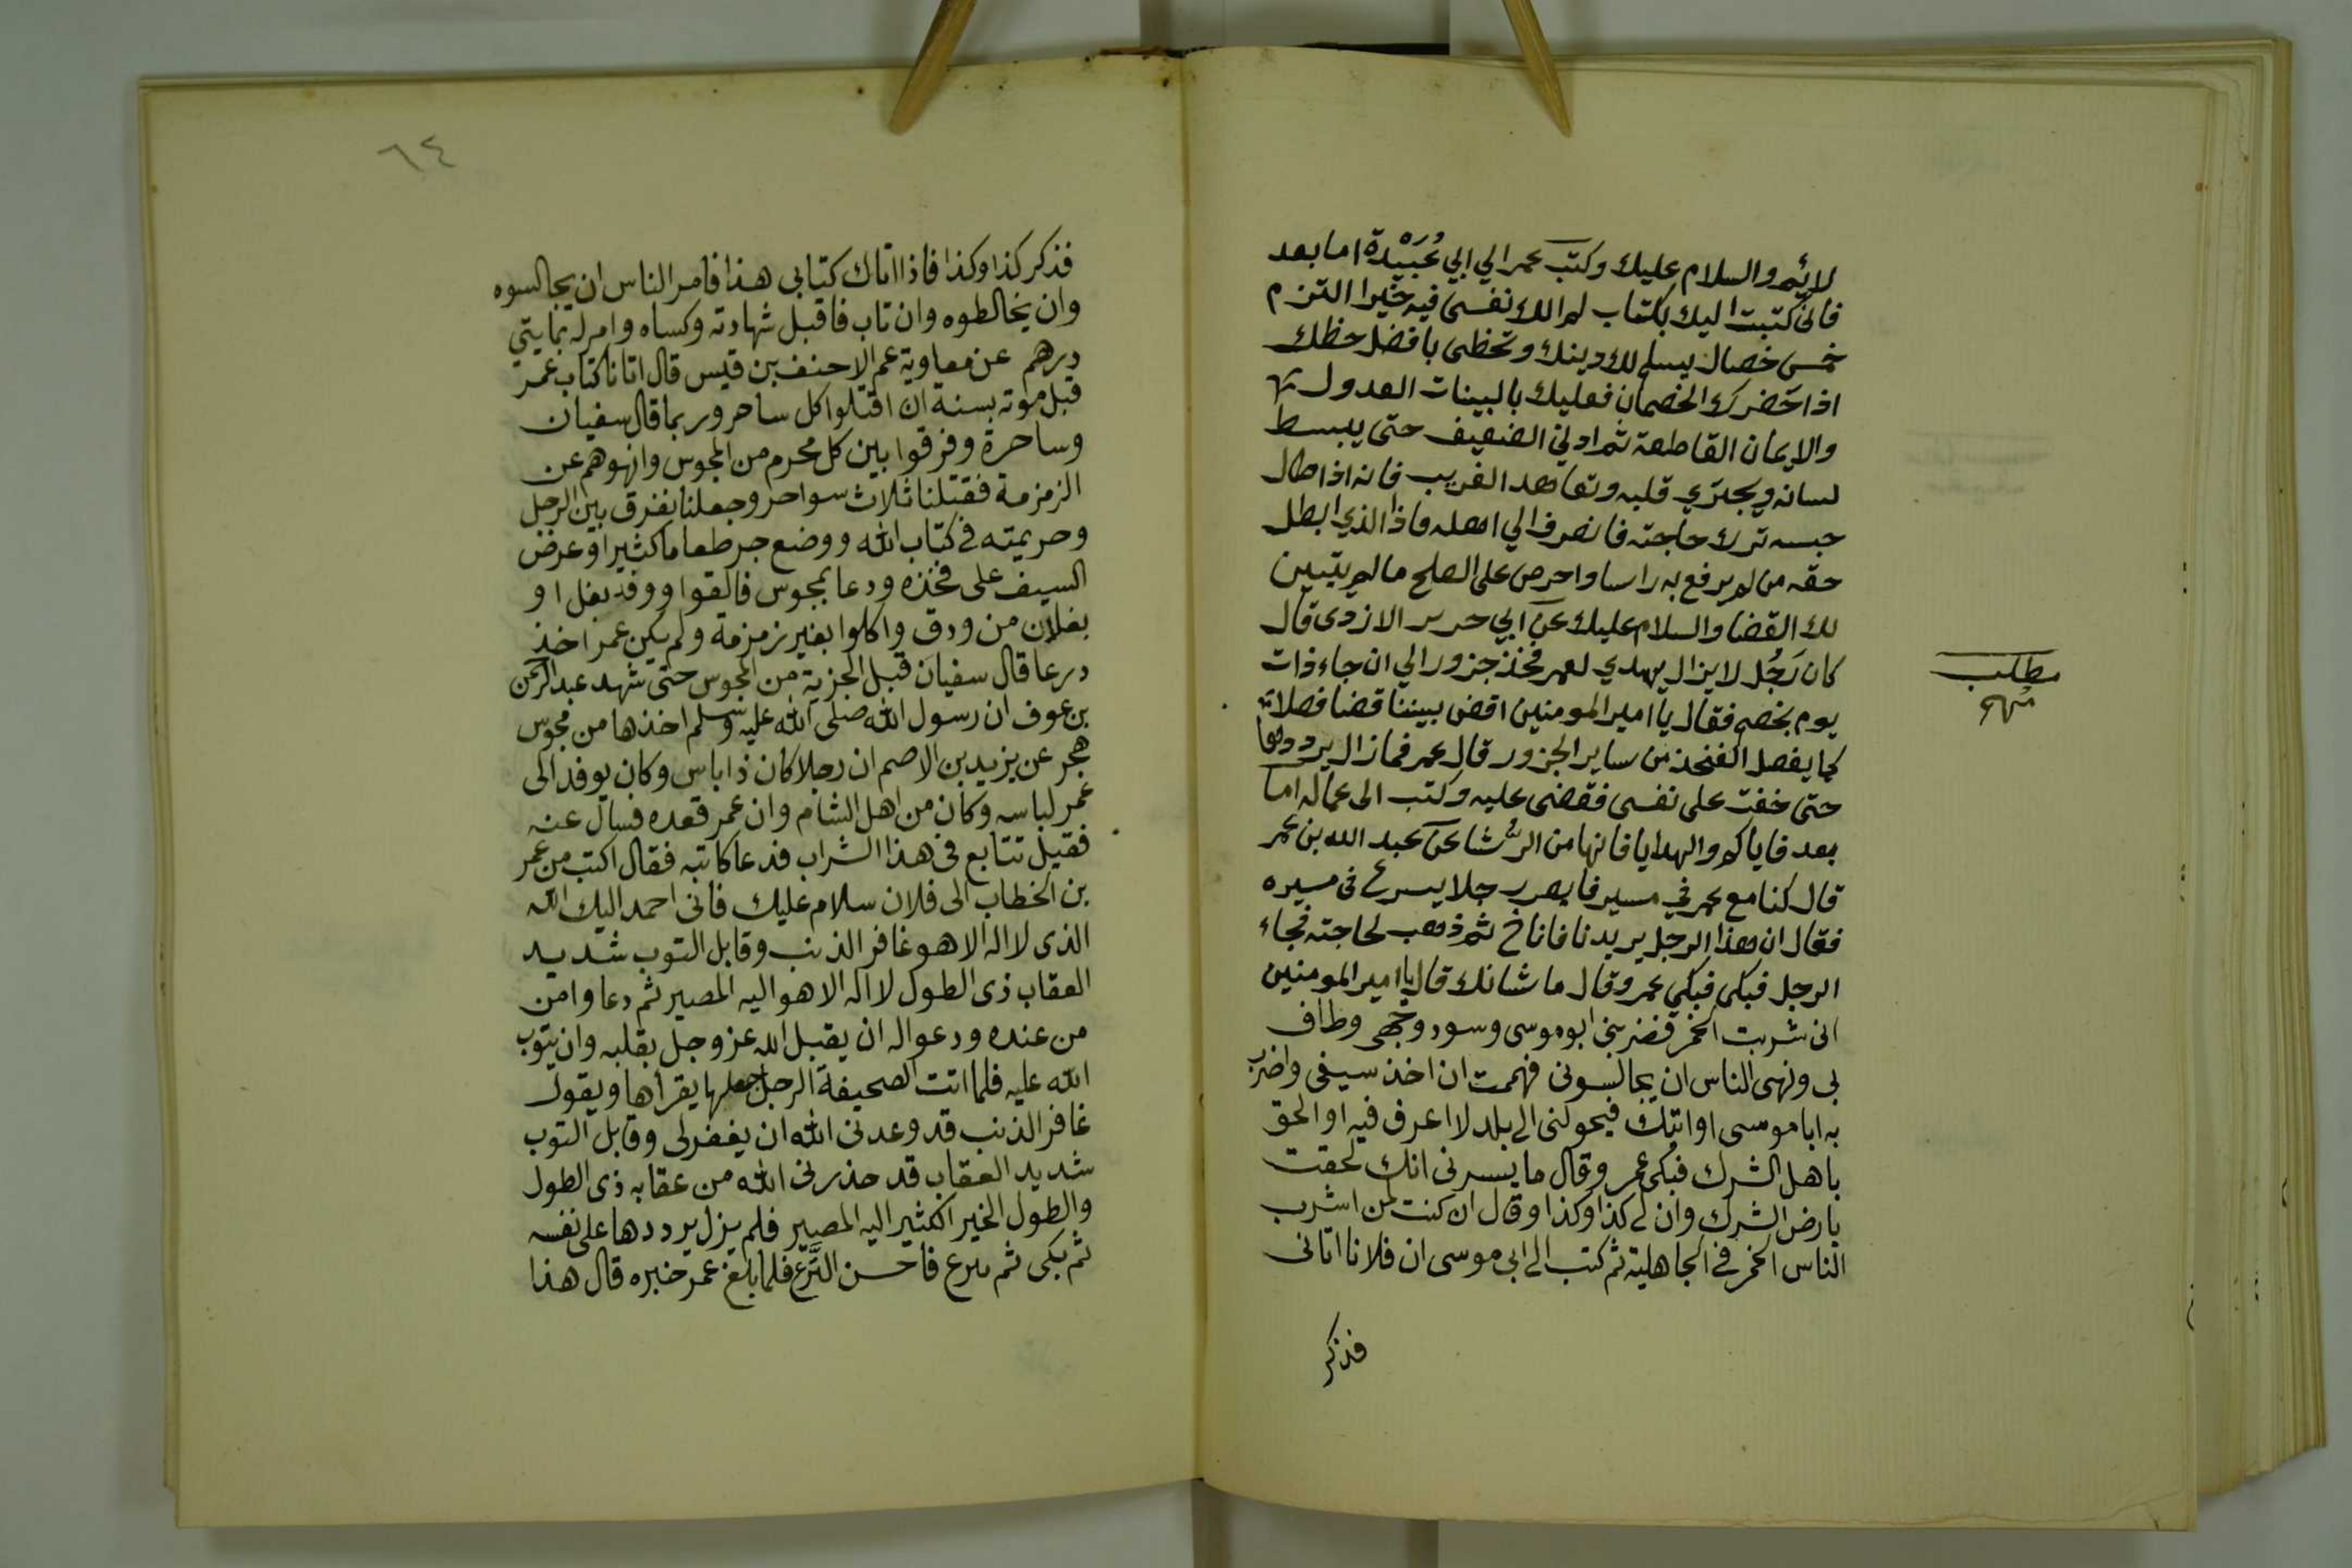 لائم والسلام عليك وكتب عمر الي ابي عُبَيْدَة اما بعد
فانى كتبت اليك بكتاب لم الك نفسى فيه خيرا التزم
خمس خصال يسلم لك دينك وتحظى بافضل حظك
اذا حضرك الخصمان فعليك بالبينات العدول
والايمان القاطعة ثم ادني الضعيف حتى يبسط
لسانه ويجتري قلبه وتعاهد الغريب فانه اذا طال
حبسه ترك حاجته فانصرف الي اهله فاذا الذي ابطل
حقه من لم يرفع به راسا واحرص على الصلح مالم يتبين
لك القضا والسلام عليك عن ابي حرير الازدى قال
كان رَجُل لايزال يهدي لعمر فخذ جزور الي ان جاء ذات
مطلب
مهم
يوم بخصم فقال يا امير المومنين اقض بيننا قضا فصلا
كما يفصل الفخذ من ساير الجزور قال عمر فمازال يرددها
حتى خفت على نفسى فقضى عليه وكتب الى عماله اما
بعد فاياكم والهدايا فانها من الرُشا عن عبد الله بن عمر
قال كنا مع عمر في مسير فابصر رجلا يسرع فى مسيره
فقال ان هذا الرجل يريدنا فاناخ ثم ذهب لحاجته فجاء
الرجل فبكى فبكي عمر وقال ما شانك قال يا امير المومنين
انى شربت الخمر فضربنى ابو موسى وسود وجهى وطاف
بى ونهى الناس ان يجالسونى فهممت ان اخذ سيفى واضرب
به ابا موسى او اتيك فيحولنى الى بلد لا اعرف فيه او الحق
باهل الشرك فبكى عمر وقال ما يسرنى انك لحقت
بارض الشرك وان لى كذا وكذا وقال ان كنت لمن اشرب
الناس الخمر فى الجاهلية ثم كتب الى ابى موسى ان فلانا اتانى
فذكر
٦٤
فذكر كذا وكذا فاذا اتاك كتابى هذا فامر الناس ان يجالسوه
وان يخالطوه وان تاب فاقبل شهادته وكساه وامر له بمايتي
درهم عن معاوية عم الاحنف بن قيس قال اتانا كتاب عمر
قبل موته بسنة ان اقتلوا كل ساحر وربما قال سفيان
وساحرة وفرقوا بين كل محرم من المجوس وانهوهم عن
الزمزمة فقتلنا ثلاث سواحر وجعلنا نفرق بين الرجل
وحريمته فى كتاب الله ووضع جر طعاما كثيرا وعرض
السيف على فخذه ودعا بمجوس فالقوا ووقد بغل او
بغلان من ورق واكلوا بغير زمزمة ولم يكن عمر اخذ
درعا قال سفيان قبل الجزية من المجوس حتى شهد عبد الرحمن
بن عوف ان رسول الله صلى الله عليه وسلم اخذها من مجوس
هجر عن يزيد بن الاصم ان رجلا كان ذا باس وكان يوفد الى
عمر لباسه وكان من اهل الشام وان عمر فقده فسال عنه
فقيل تتابع فى هذا الشراب فدعا كاتبه فقال اكتب من عمر
بن الخطاب الى فلان سلام عليك فانى احمد اليك الله
الذى لا اله الا هو غافر الذنب وقابل التوب شديد
العقاب ذى الطول لا اله الا هو اليه المصير ثم دعا وامن
من عنده ودعوا له ان يقبل الله عز وجل بقلبه وان يتوب
الله عليه فلما اتت الصحيفة الرجل جعلها يقراها ويقول
غافر الذنب قد وعدنى الله ان يغفر لى وقابل التوب
شديد العقاب قد حذرنى الله من عقابه ذى الطول
والطول الخير الكثير اليه المصير فلم يزل يرددها على نفسه
ثم بكى ثم نزع فاحسن النَّزع فلما بلغ عمر خبره قال هذا